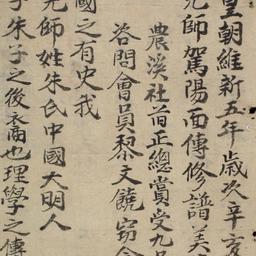 皇朝維新五年歲次辛亥
先師駕陽面傳修譜美
農溪社首正總賞受九品
答問會員黎文饒窃念
國之有史我
先師姓朱氏中國大明人
子朱子之後裔也理學之傳